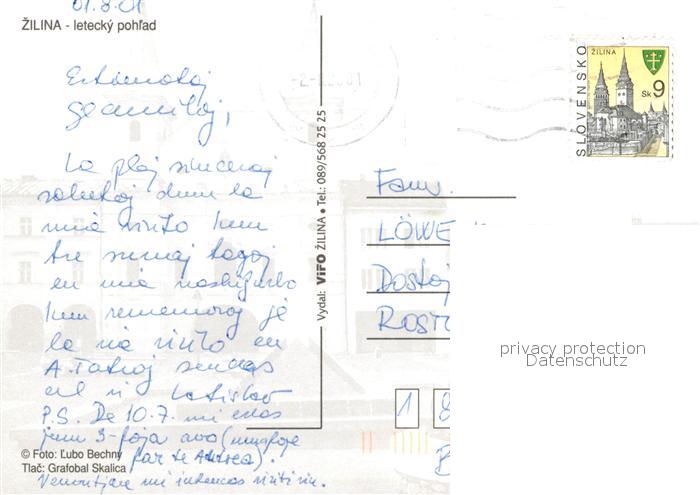 01.8.01
ŽILINA - letecký pohľad
Estimataj
geamikoj,
La plej sincerajn
salutojn dum la
mia vizito kun
tre sunaj tagoj
en mia naskiĝurbo
kun rememoroj je
la via vizito en
A. Tatroj sendas
al vi Latislav
P.S. De 10.7. mi estas
jam 3-foja avo (
far la Andrea).
Venontjare mi intencas viziti vin.
© Foto: Ľubo Bechný
Tlač: Grafobal Skalica
Vydal: VIFO ŽILINA • Tel.: 089/568 25 25
SLOVENSKO
ŽILINA
Sk 9
Fam.
LÖWE
Dostoj
ROSTO
1 8
privacy protection
Datenschutz